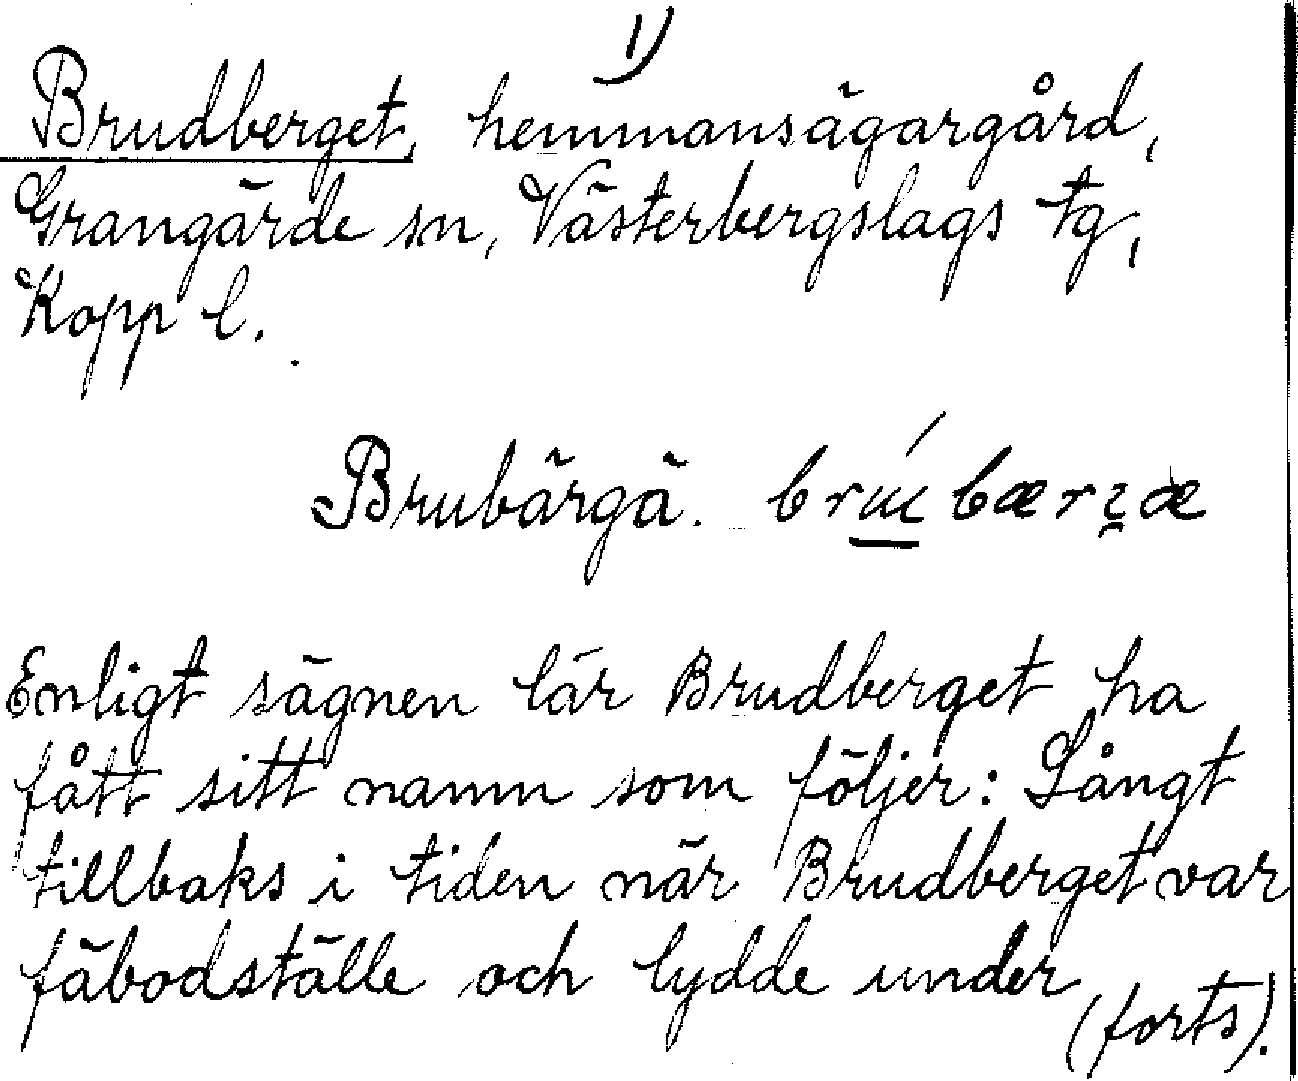 1)
Brudberget, hemmansägargård,
Grangärde sn, Västerbergslags tg,
Kopp l.
Brubärgä.
Enligt sägnen lär Brudberget ha
fått sitt namn som följer: Långt
tillbaks i tiden när Brudberget var
fäbodställe och lydde under
(forts).